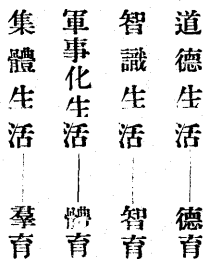 道德生活——德育
智識生活——智育
軍事化生活——體育
集體生活——羣育